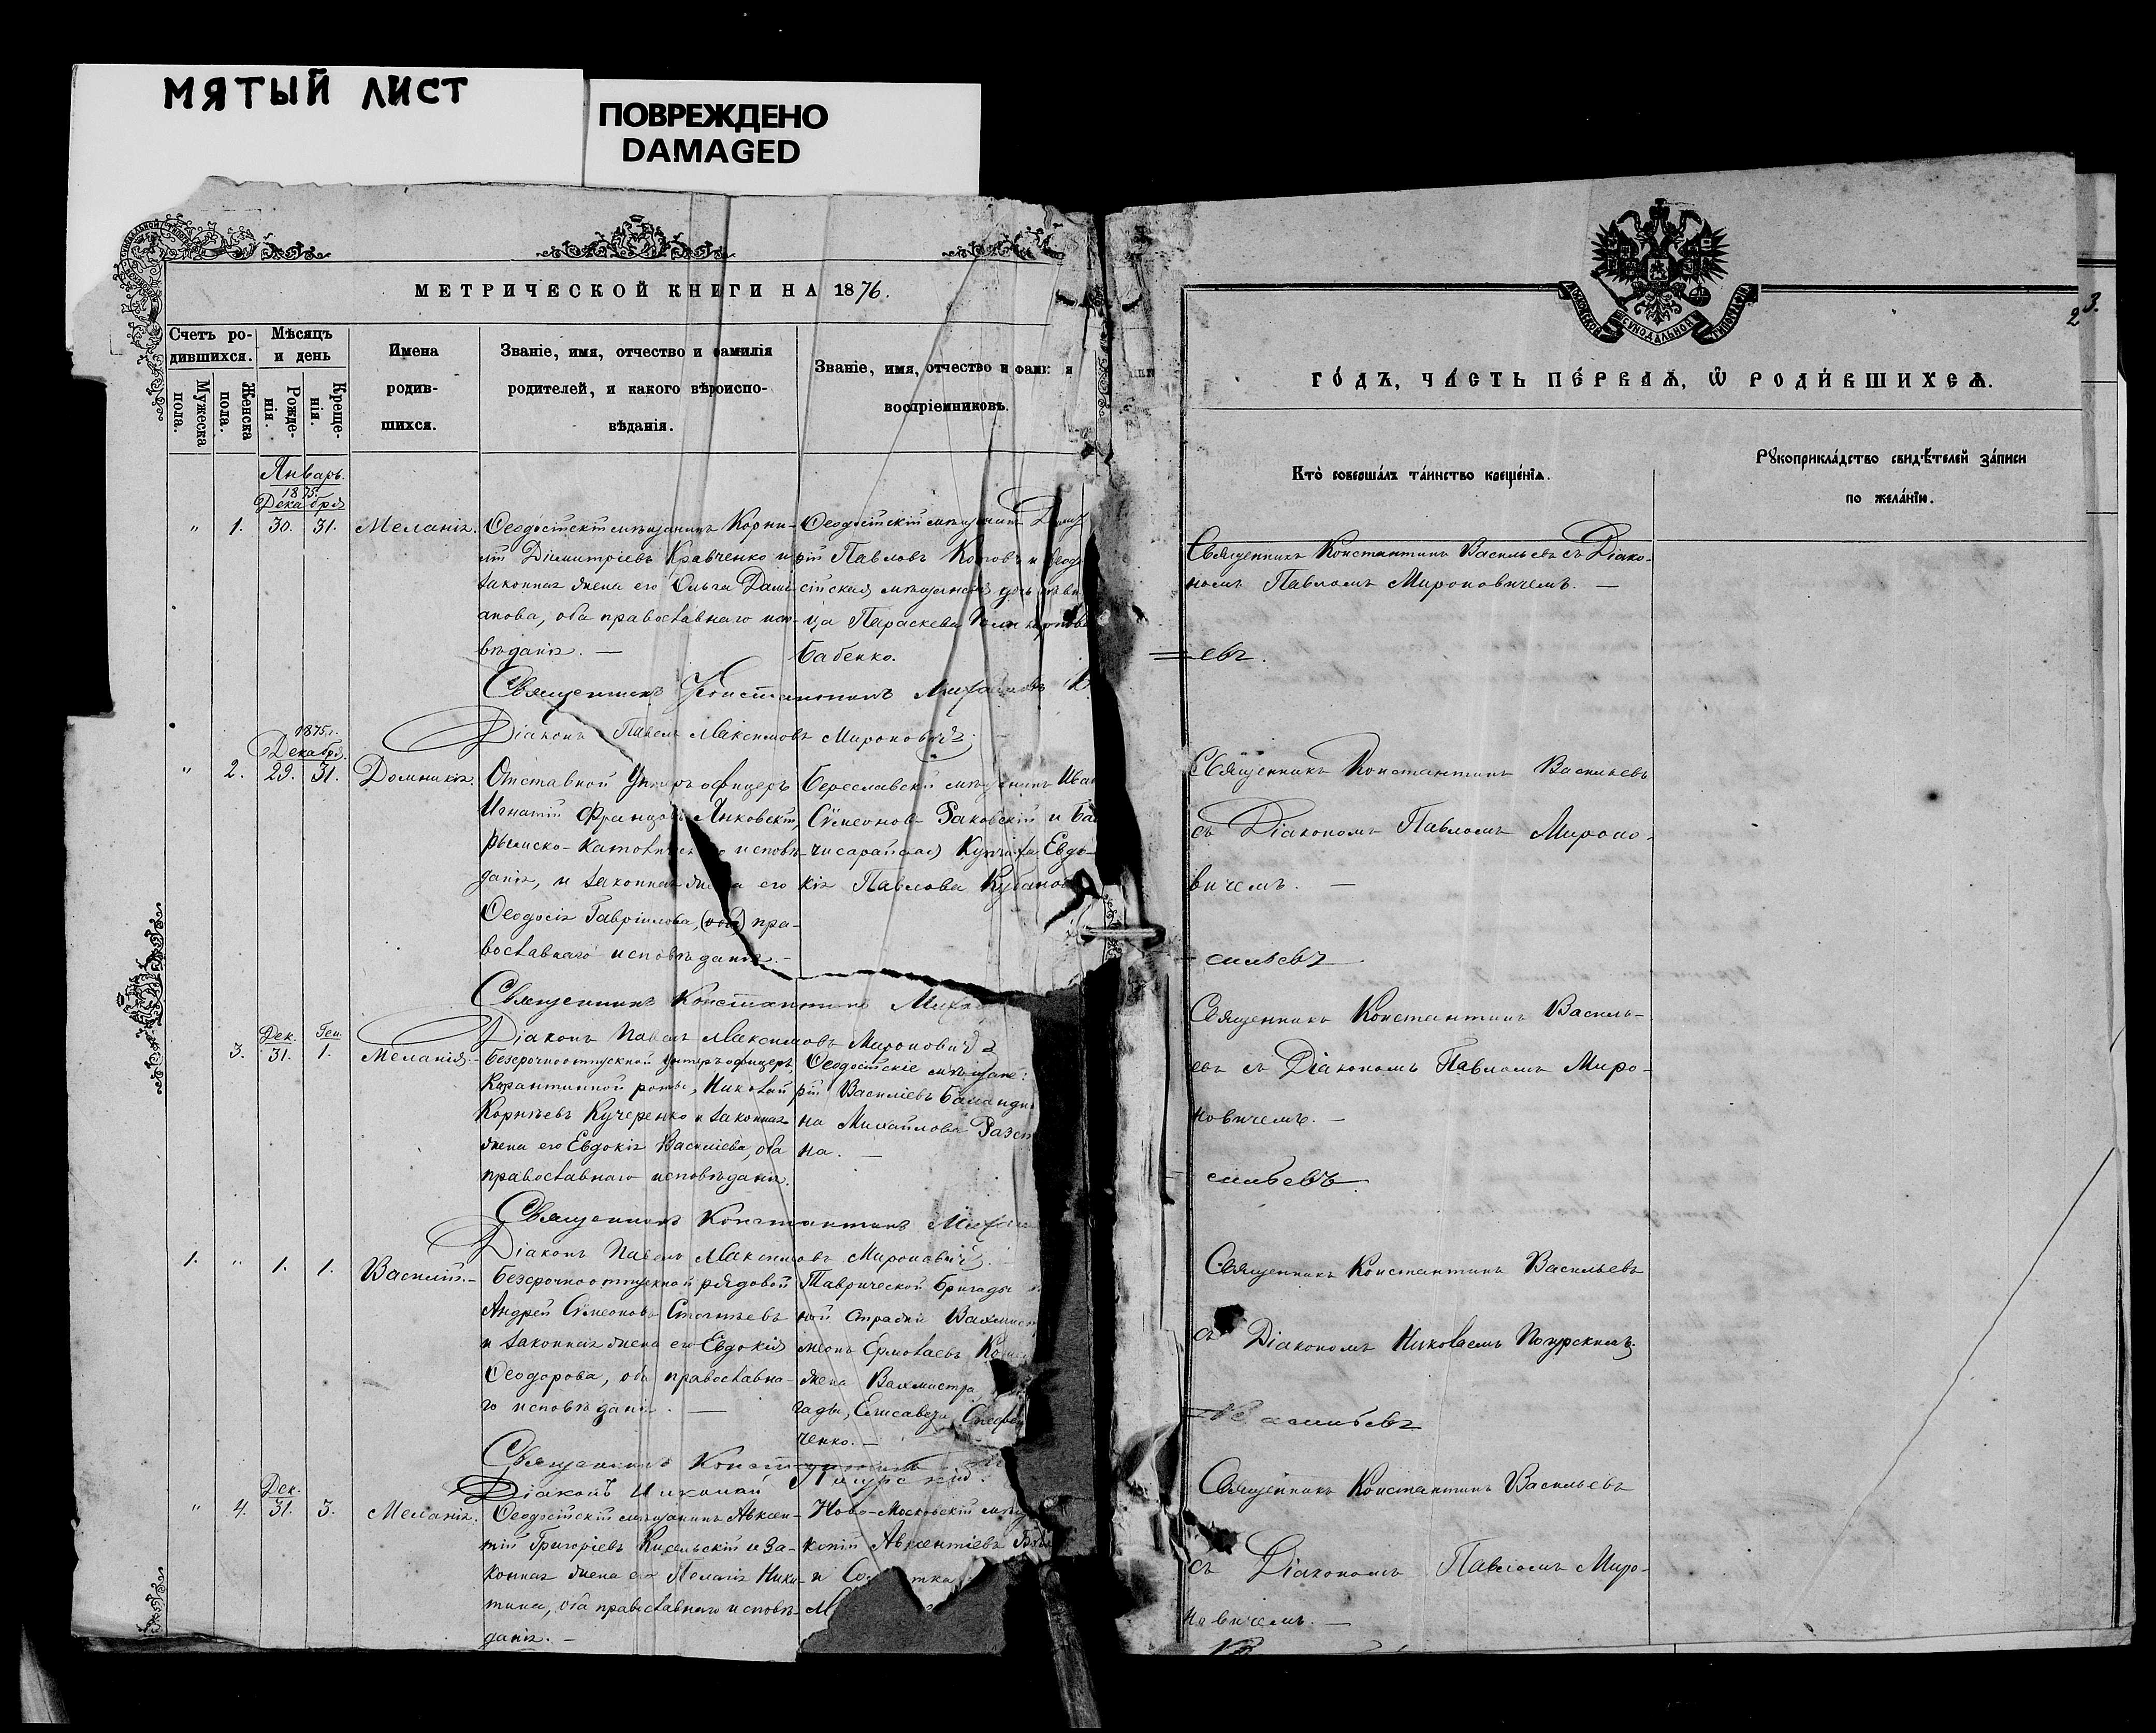 МЯТЫЙ ЛИСТ
ПОВРЕЖДЕНО
DAMAGED
МЕТРИЧЕСКОЙ КНИГИ НА 1876.
Счетъ ро-
дившихся.
Мужеска пола.
Женска пола.
Мѣсяцъ
и день
Рожде-
нія.
Креще-
нія.
Имена
родив-
шихся.
Званіе, имя, отчество и фамилія
родителей, и какого вѣроиспо-
вѣданія.
Званіе, имя, отчество и фам
воспріемниковъ.
Январь.
1875.
Декабря
" 1. 30. 31. Меланія.
Ѳеодосійскій мѣщанинъ Корни-
лій Димитріевъ Кравченко и
законная жена его Ольга Дами-
анова, оба православнаго испо-
вѣданія. —
Ѳеодосійскій мѣщанинъ
рій Павловъ Котовъ и Ѳеодо
сійская мѣщанская дочь дѣви
ца Параскева
Бабенко.
Священникъ Константинъ Михаиловъ
Діаконъ Павелъ Максимовъ Мироновичъ
1875 г.
Декабря
" 2. 29. 31. Домникія.
Отставной Унтеръ офицеръ
Игнатій Францовъ Янковскій,
Римско-католическ исповѣ-
данія, и законная жена его
Ѳеодосія Гавріилова, (оба) пра-
вославнаго исповѣданія. —
Береславскій мѣщанинъ Иван
Сѵмеоновъ Раковскій и Бах
чисарайская Купчиха Евдо-
кія Павлова Кубанов
Священникъ Константинъ Миха
Діаконъ Павелъ Максимовъ Мироновичъ
Дек. Ген.
3. 31. 1. Меланія. —
Безсрочноотпускной унтеръ офицеръ
Карантинной роты, Николай
Корнѣевъ Кучеренко и законная
жена его Евдокія Василіева, оба
православнаго исповѣданія.
Ѳеодосійскіе мѣщане:
рій Василіевъ
на Михайлова
на. —
Священникъ Константинъ Михаи
Діаконъ Павелъ Максимовъ Мироновичъ. —
1. " 1. 1. Василій. —
Безсрочноотпускной рядовой
Андрей Сѵмеоновъ Статьевъ
и законная жена его Евдокія
Ѳеодорова, оба православна-
го исповѣданія. —
Таврической Бригады
ной Стражи Вахмист
меонъ Ермолаевъ
жена Вахмистра
гады, Елисавета
ченко. —
Священникъ Константинъ
Діаконъ Николай Погурскій.
Дек.
" 4. 31. 3. Меланія.
Ѳеодосійскій мѣщанинъ Авксен-
тій Григоріевъ Кисельскій и за-
конная жена его Пелагія Ники-
тина, оба православнаго исповѣ-
данія. —
Ново-Московскій мѣщ
Авксентіевъ
и
ГО́ДЪ, ЧА́СТЬ ПЕ́РВАЯ, Ѡ РОДИ́ВШИХСЯ.
2 3.
Кто̀ соверша́лъ та́инство креще́нїя.
Рꙋкоприкла́дство свидѣ́телей за́писи
по жела́нїю.
Священникъ Константинъ Васильевъ съ Діако-
номъ Павломъ Мироновичемъ. —
евъ.
Священникъ Константинъ Васильевъ
съ Діакономъ Павломъ Мироно-
вичемъ. —
сильевъ
Священникъ Константинъ Василь-
евъ съ Діакономъ Павломъ Миро-
новичемъ. —
сильевъ.
Священникъ Константинъ Васильевъ
съ Діакономъ Николаемъ Погурскимъ.
Васильевъ
Священникъ Константинъ Васильевъ
съ Діакономъ Павломъ Миро-
новичемъ. —